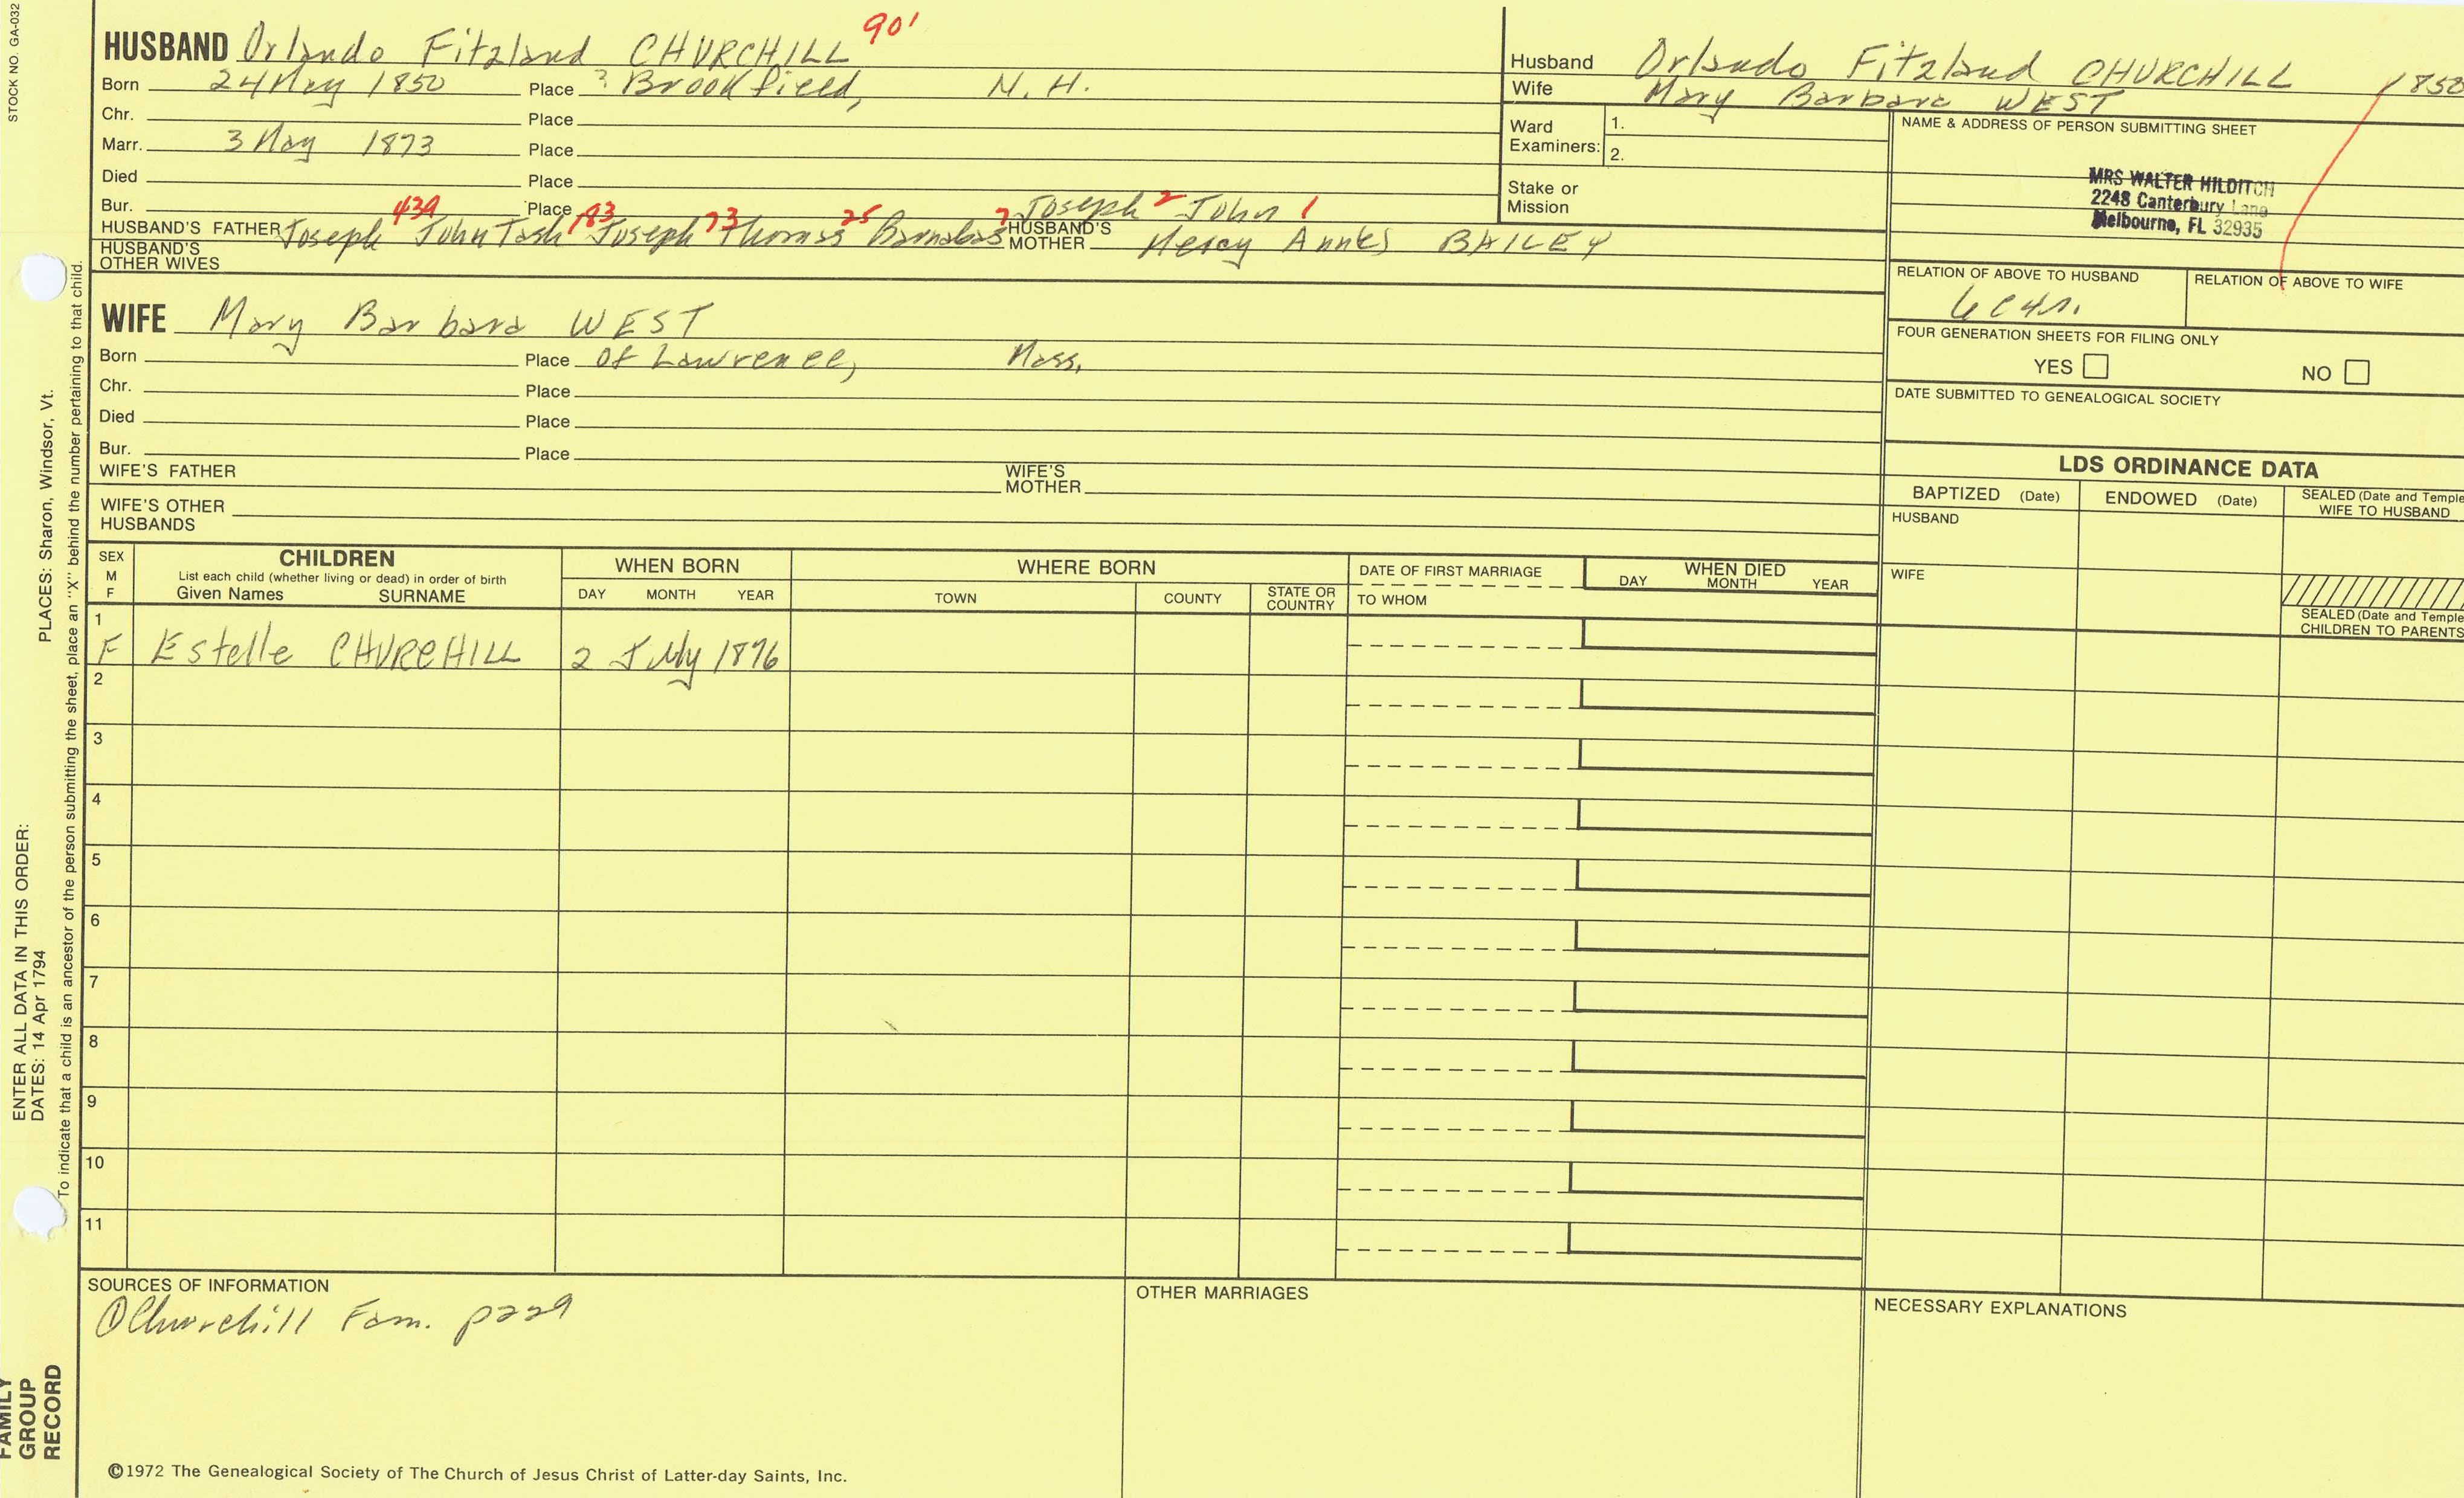 STOCK NO. GA-032
HUSBAND Orlando Fitzland CHURCHILL 901
Born 24 May 1850 Place ? Brookfield, N.H.
Chr. Place
Marr. 3 May 1873 Place
Died Place
Bur. Place Joseph 2 John 1
HUSBAND'S FATHER Joseph 439 John Tash 183 Joseph 73 Thomas 25 Barnabas 7 HUSBAND'S MOTHER Mercy Ann(e) BAILEY
HUSBAND'S OTHER WIVES
WIFE Mary Barbara WEST
Born Place of Lawrence, Mass.
Chr. Place
Died Place
Bur. Place
WIFE'S FATHER WIFE'S MOTHER
WIFE'S OTHER HUSBANDS
Husband Orlando Fitzland CHURCHILL 1850
Wife Mary Barbara WEST
Ward Examiners: 1.
2.
Stake or Mission
NAME & ADDRESS OF PERSON SUBMITTING SHEET
MRS WALTER HILDITCH
2248 Canterbury Lane
Melbourne, FL 32935
RELATION OF ABOVE TO HUSBAND RELATION OF ABOVE TO WIFE
FOUR GENERATION SHEETS FOR FILING ONLY
YES NO
DATE SUBMITTED TO GENEALOGICAL SOCIETY
LDS ORDINANCE DATA
BAPTIZED (Date) ENDOWED (Date) SEALED (Date and Temple
WIFE TO HUSBAND
HUSBAND
WIFE
SEALED (Date and Temple
CHILDREN TO PARENTS
SEX M F CHILDREN WHEN BORN WHERE BORN DATE OF FIRST MARRIAGE WHEN DIED
List each child (whether living or dead) in order of birth
Given Names SURNAME DAY MONTH YEAR TOWN COUNTY STATE OR COUNTRY TO WHOM DAY MONTH YEAR
1
F Estelle CHURCHILL 2 July 1876
2
3
4
5
6
7
8
9
10
11
SOURCES OF INFORMATION
① Churchill Fam. p229
OTHER MARRIAGES
NECESSARY EXPLANATIONS
©1972 The Genealogical Society of The Church of Jesus Christ of Latter-day Saints, Inc.
ENTER ALL DATA IN THIS ORDER:
DATES: 14 Apr 1794
PLACES: Sharon, Windsor, Vt.
To indicate that a child is an ancestor of the person submitting the sheet, place an "X" behind the number pertaining to that child.
FAMILY
GROUP
RECORD